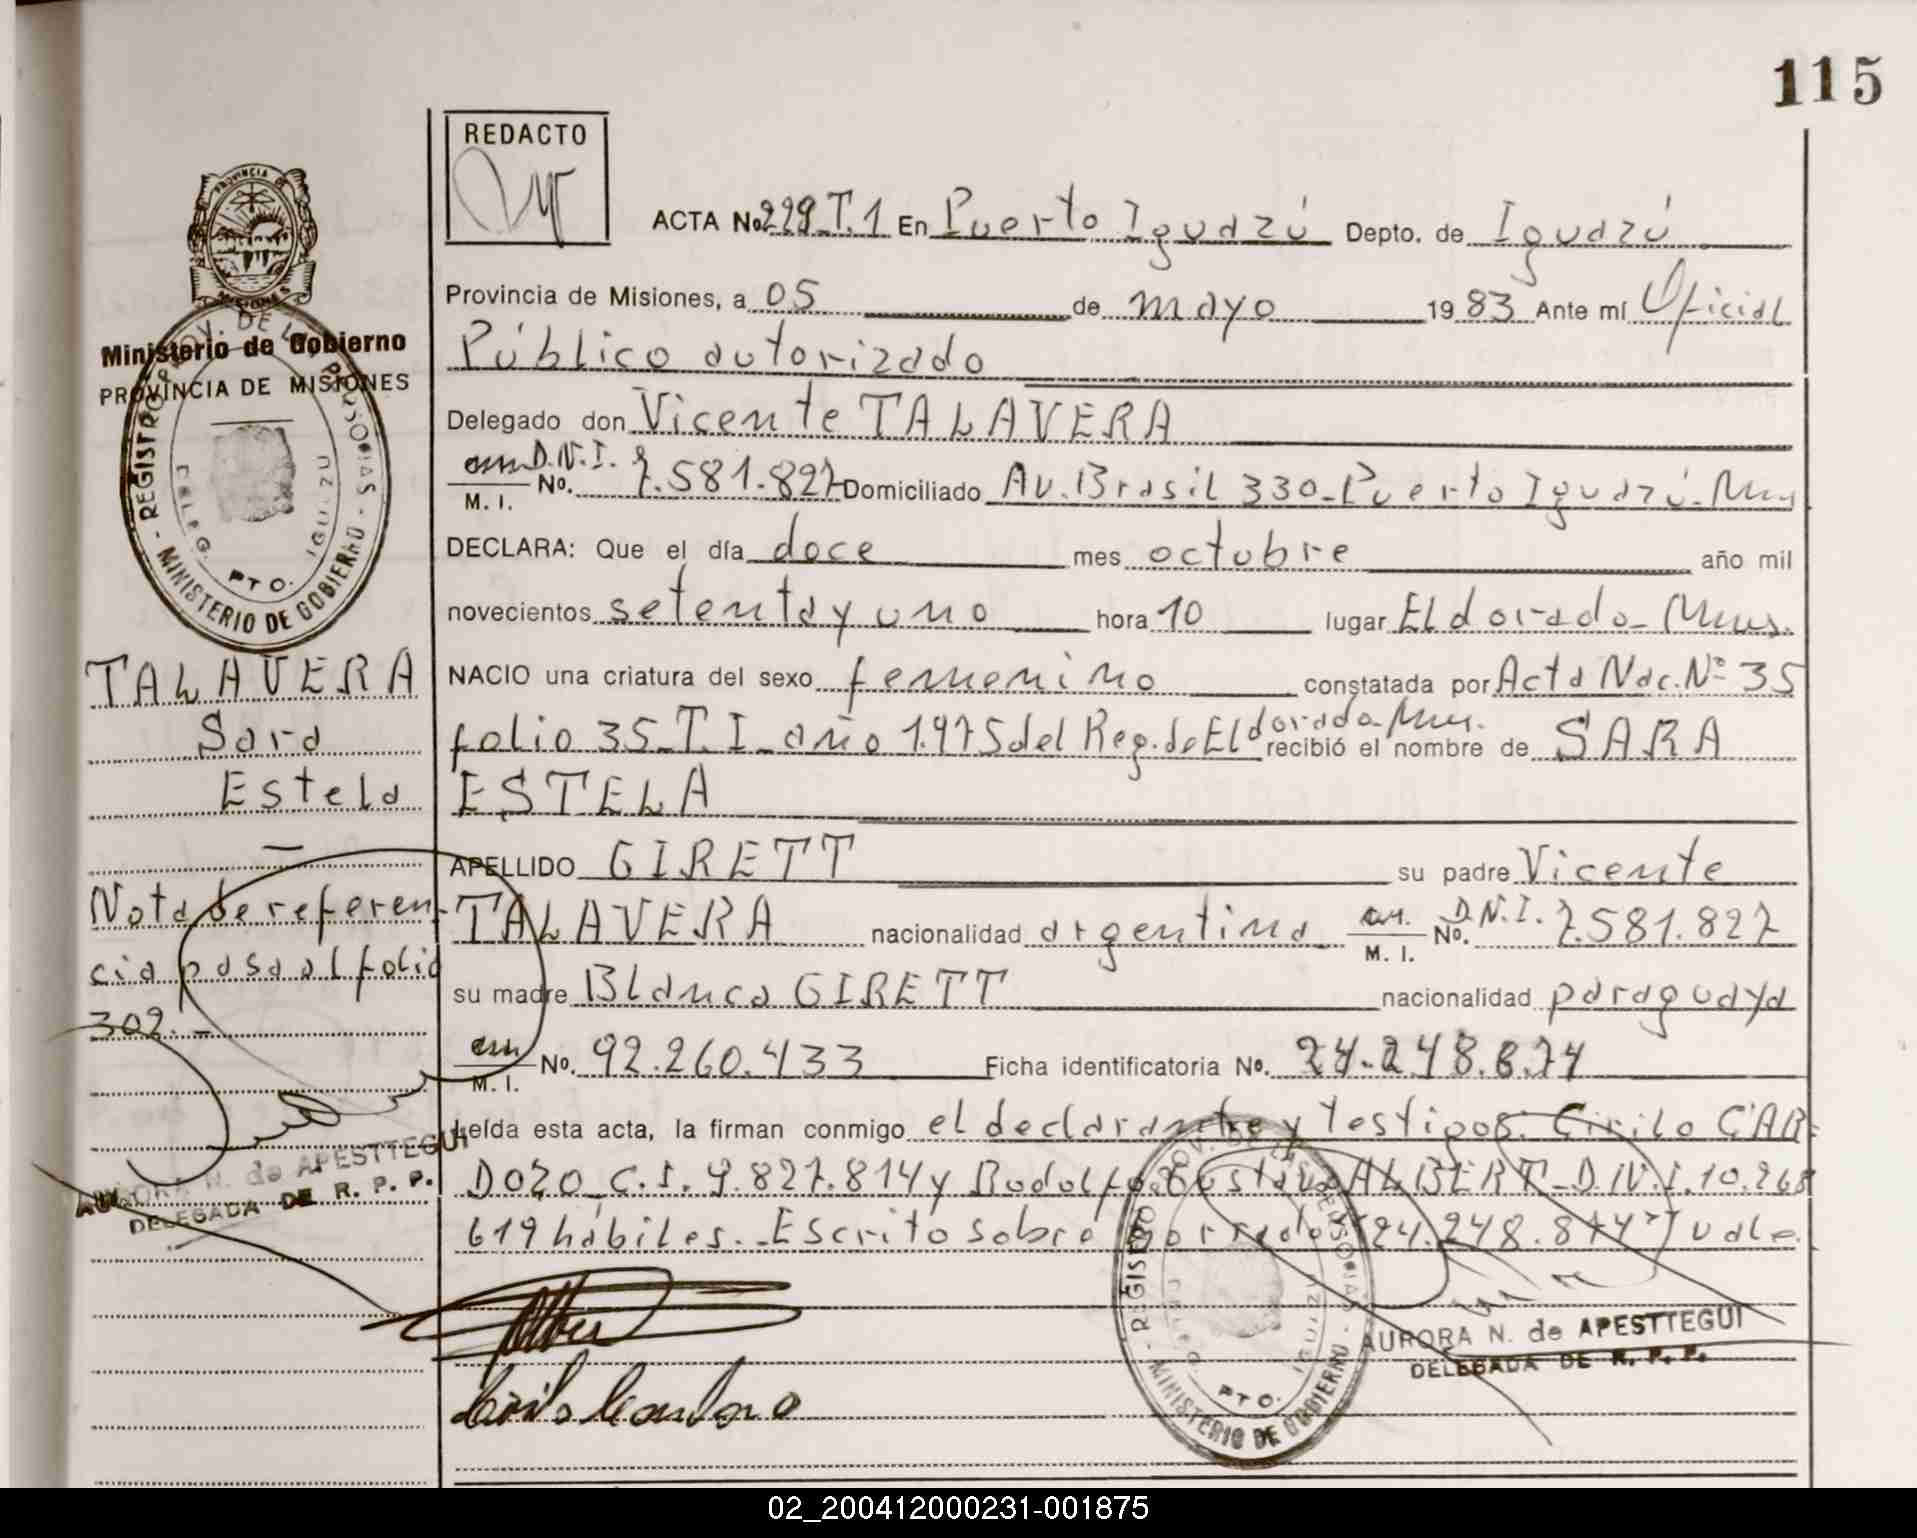 115
REDACTO
ACTA No. 229 T.1 En Puerto Iguazú Depto. de Iguazú
Provincia de Misiones, a 05 de mayo 1983 Ante mí Oficial
Público autorizado
Delegado don Vicente TALAVERA
D.N.I. M. I. No. 7.581.827 Domiciliado Av. Brasil 330-Puerto Iguazú-Mnes
DECLARA: Que el día doce mes octubre año mil
novecientos setenta y uno hora 10 lugar Eldorado-Mnes.
NACIO una criatura del sexo femenino constatada por Acta Nac. Nº 35
folio 35-T.I-año 1.975 del Reg. de Eldorado-Mnes. recibió el nombre de SARA
ESTELA
APELLIDO GIRETT su padre Vicente
TALAVERA nacionalidad argentina M. I. No. D.N.I. 7.581.827
su madre Blanca GIRETT nacionalidad paraguaya
M. I. No. 92.260.433 Ficha identificatoria No. 24.248.874
Leída esta acta, la firman conmigo el declarante y testigos: Cirilo CAR-
DOZO C.I. 9.827.814 y Rodolfo Gustavo ALBERT-D.N.I. 10.268
619 hábiles.-Escrito sobre borrado "24.248.874" vale.
AURORA N. de APESTTEGUI
DELEGADA DE R. P. P.
Cirilo Cardozo
PROVINCIA DE MISIONES
Ministerio de Gobierno
PROVINCIA DE MISIONES
REGISTRO PROV. DE LAS PERSONAS - MINISTERIO DE GOBIERNO
DELEG. PTO. IGUAZU
TALAVERA
Sara
Estela
Nota de referen-
cia pasa al folio
302.-
AURORA N. de APESTTEGUI
DELEGADA DE R. P. P.
REGISTRO PROV. DE LAS PERSONAS - MINISTERIO DE GOBIERNO
DELEG. PTO. IGUAZU
02_200412000231-001875